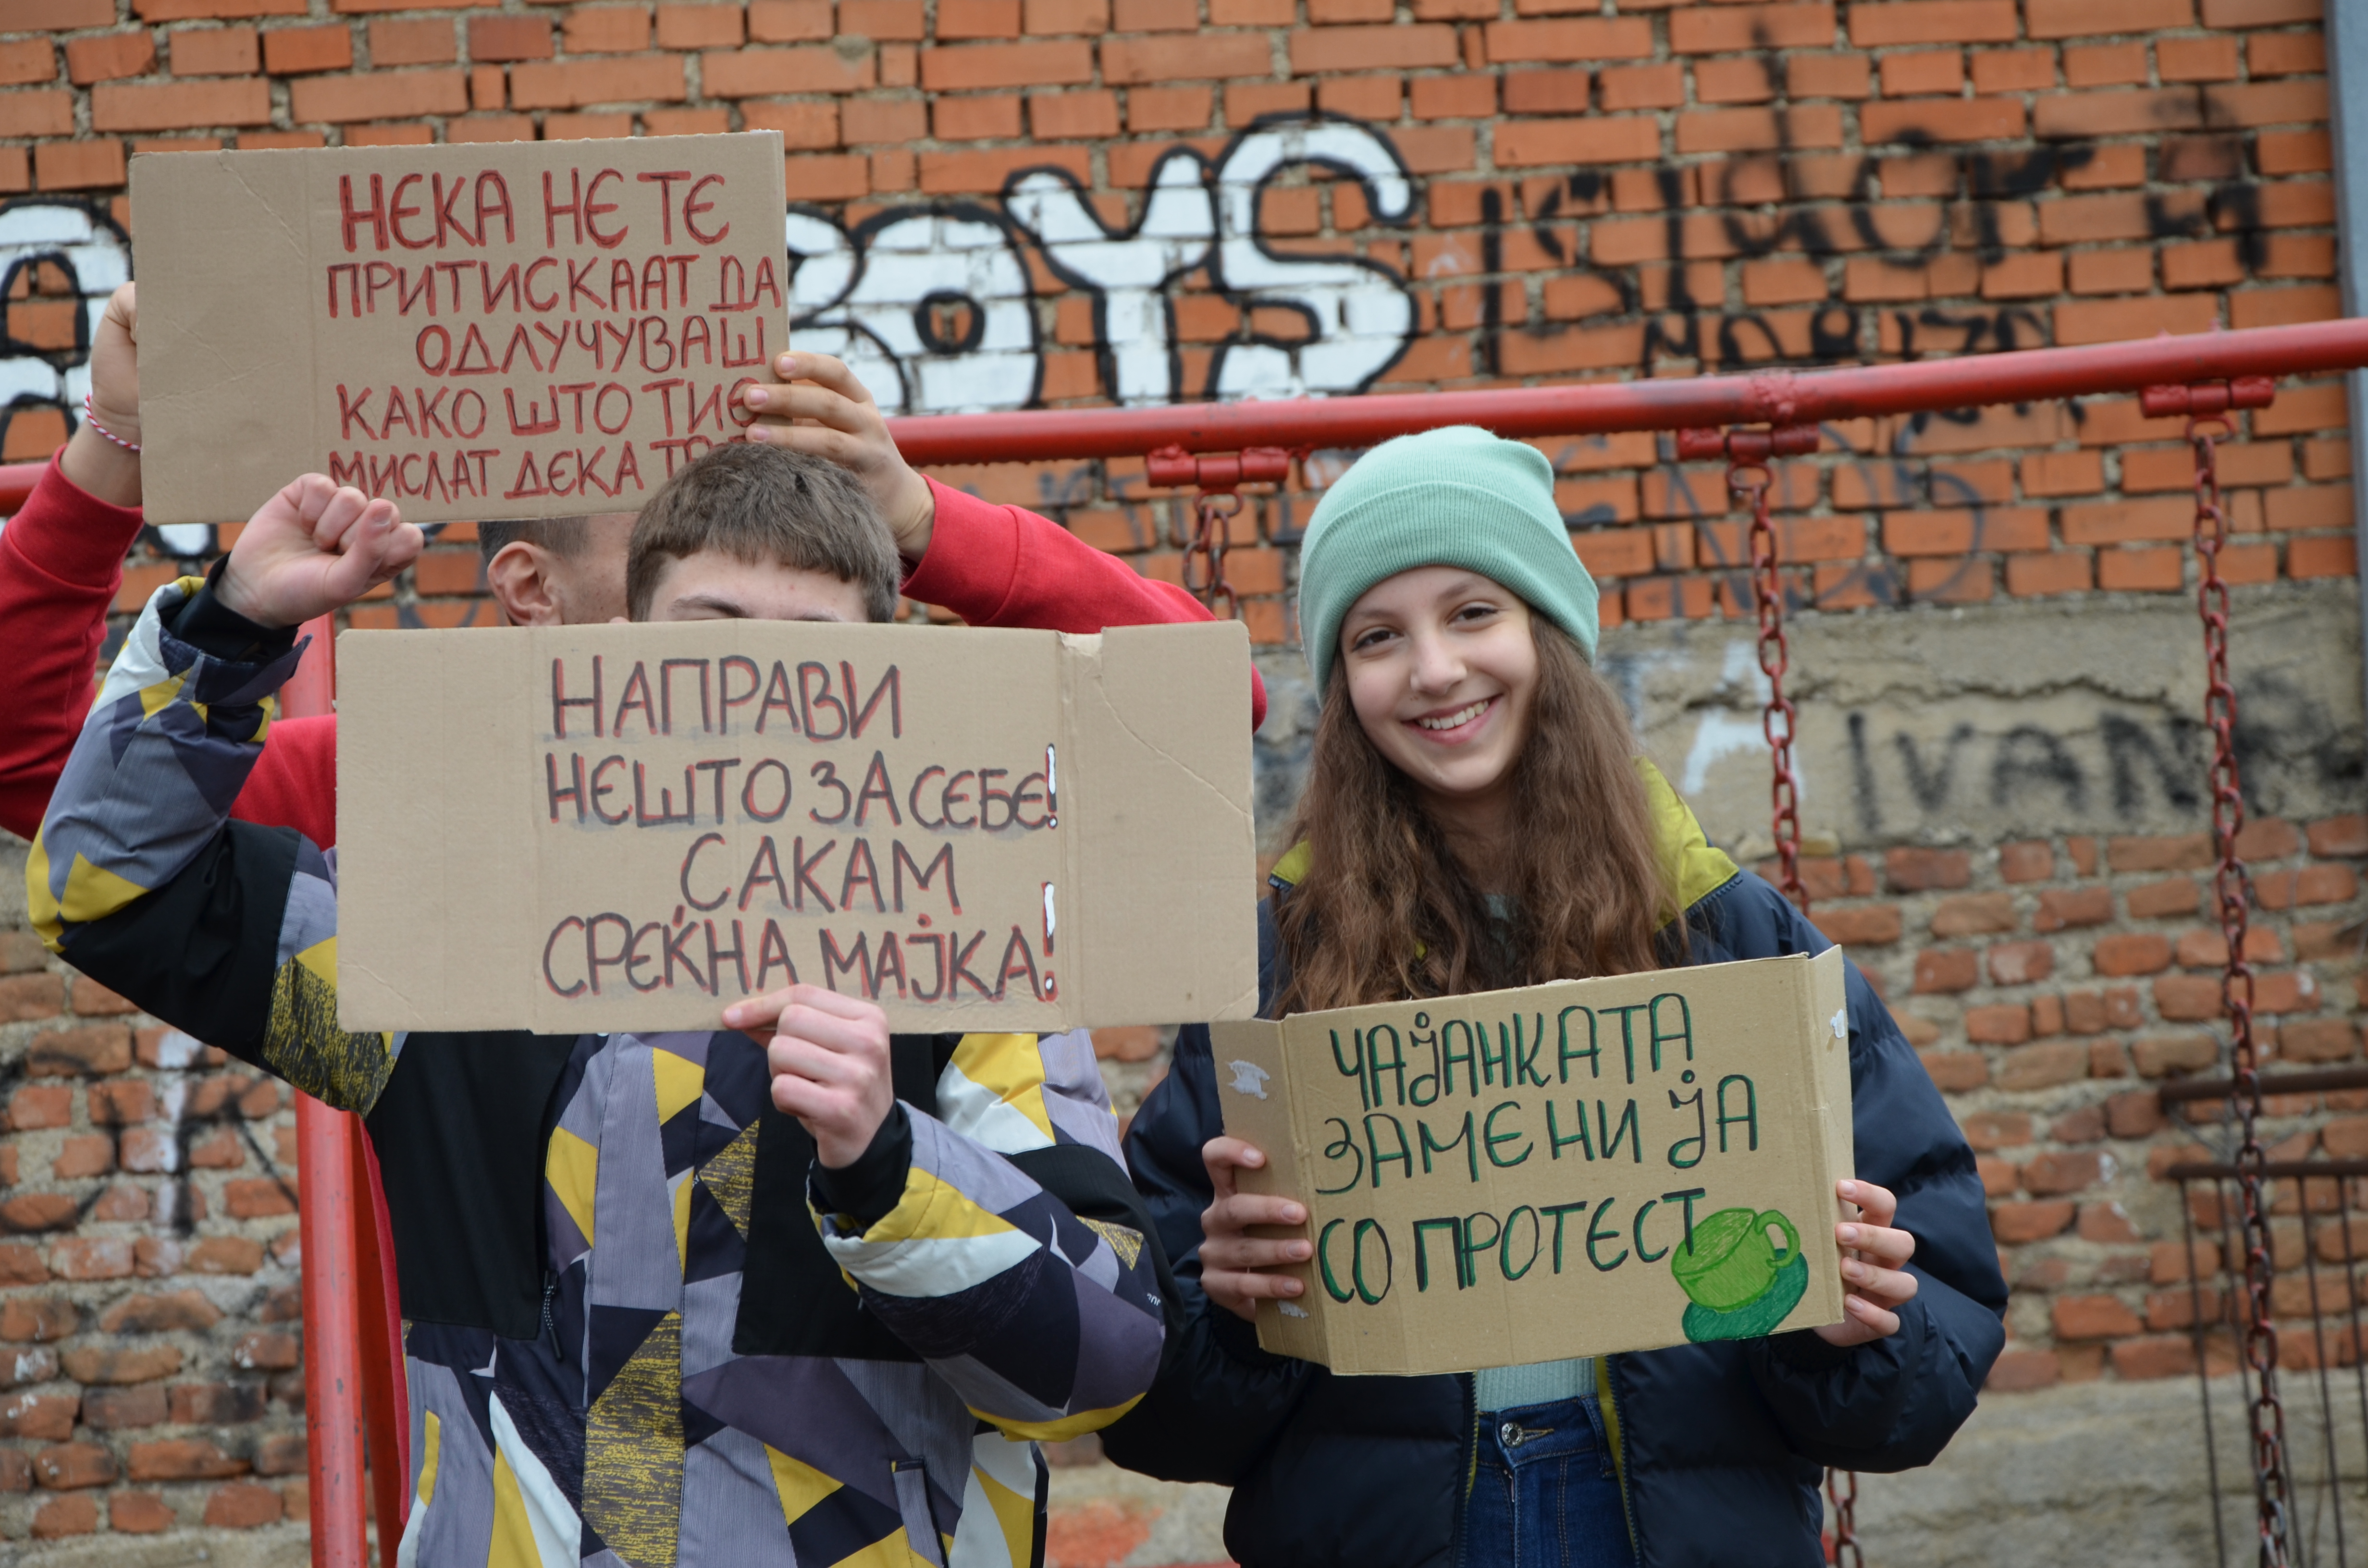 НЕКА НЕ ТЕ
ПРИТИСКААТ ДА
ОДЛУЧУВАШ
КАКО ШТО ТИЕ
МИСЛАТ ДЕКА
НАПРАВИ
НЕШТО ЗА СЕБЕ!
САКАМ
СРЕЌНА МАЈКА!
ЧАЈАНКАТА
ЗАМЕНИ ЈА
СО ПРОТЕСТ
BOYS
IVANA